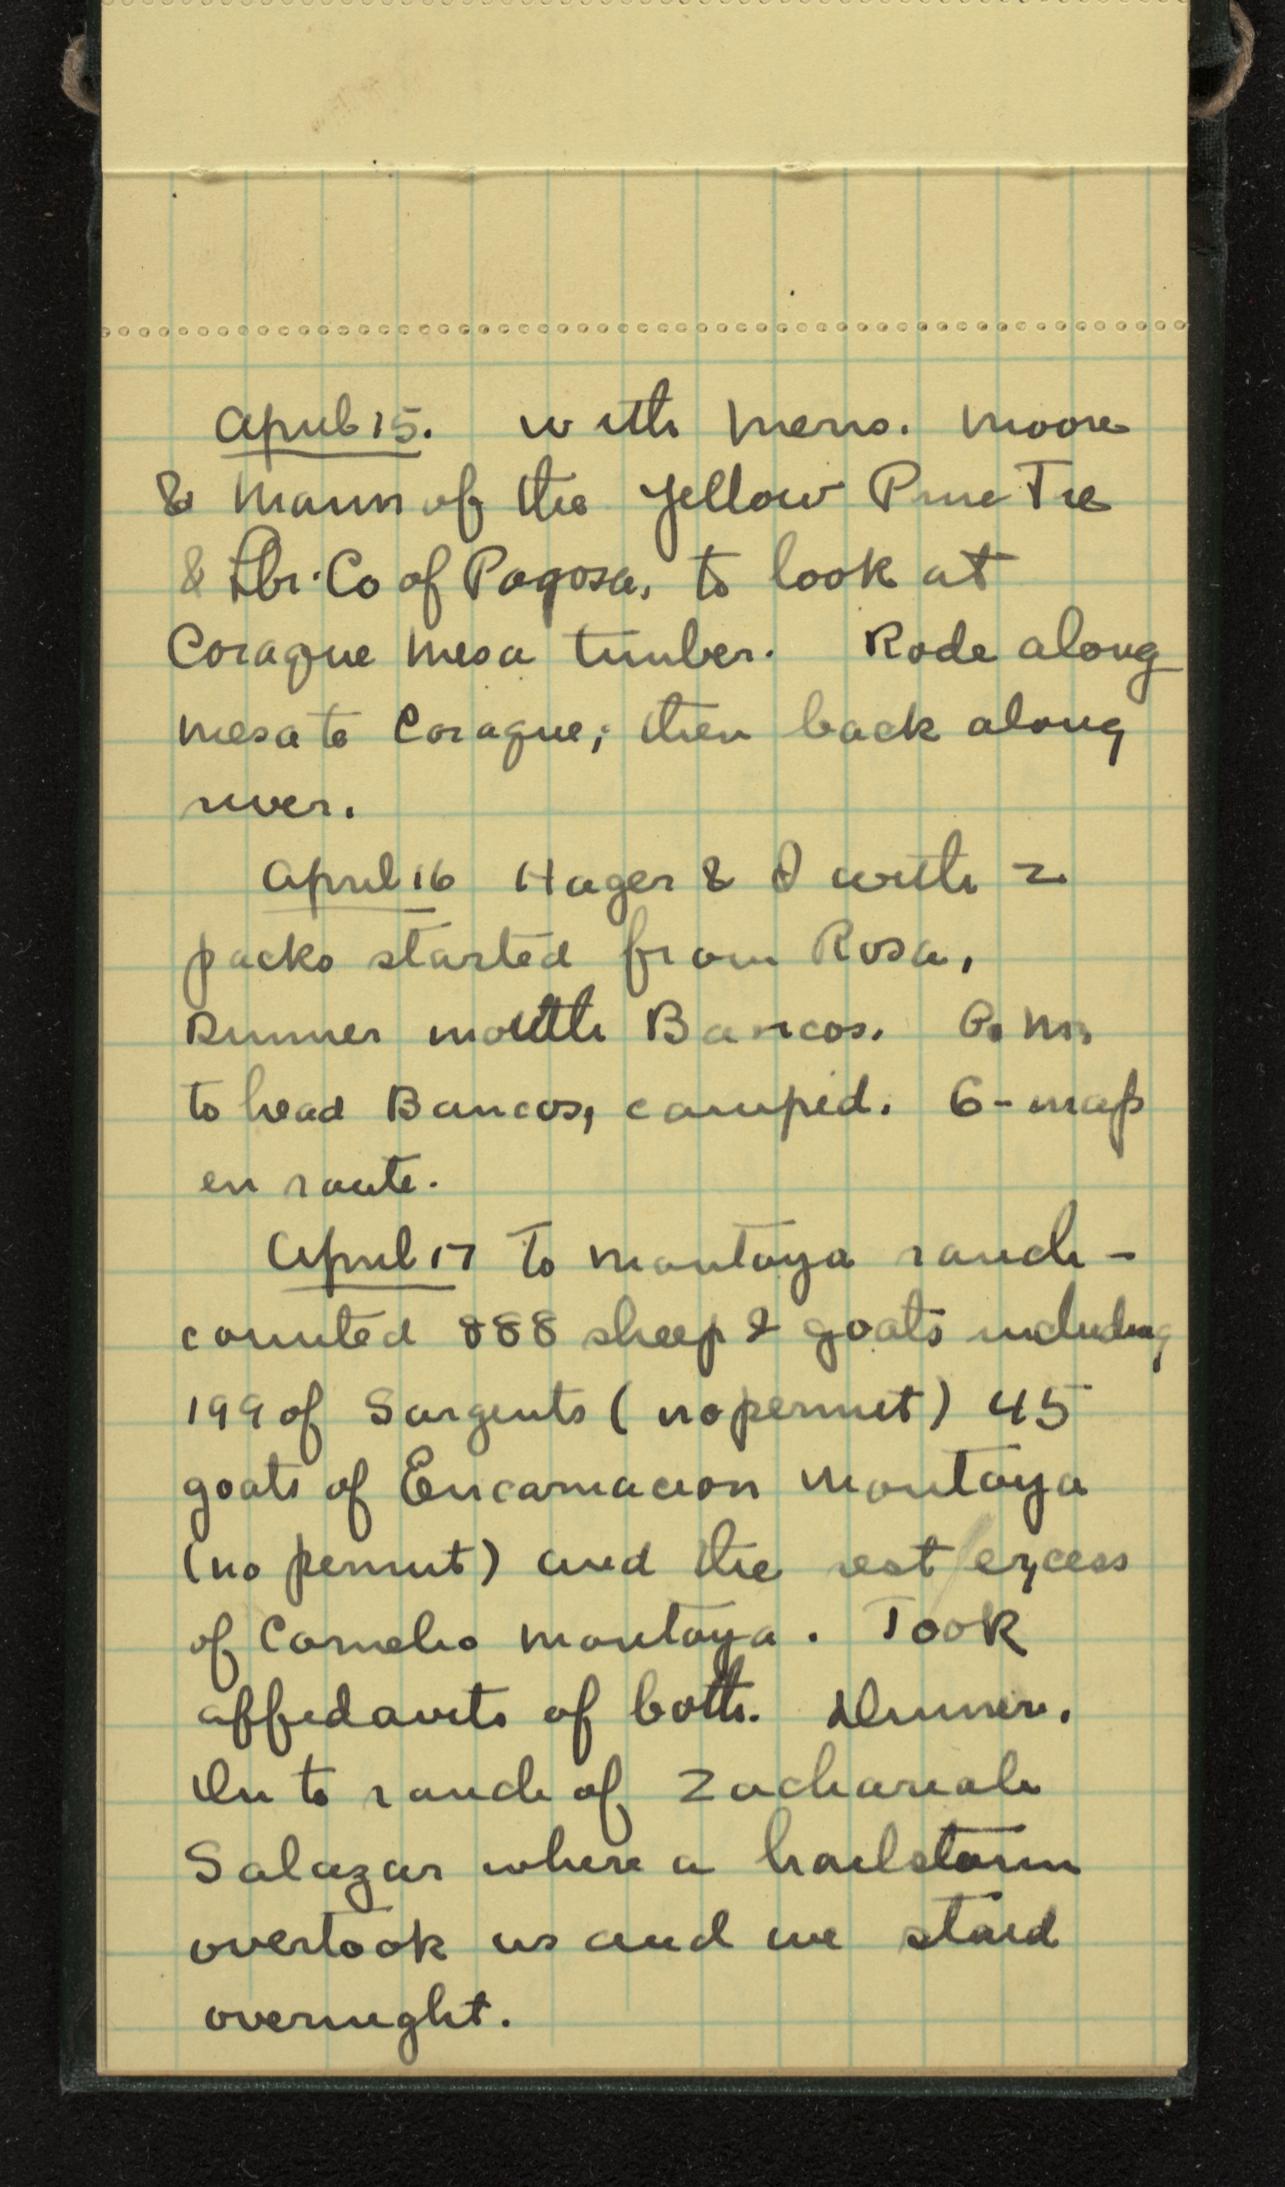 April 15. with Merrs. Moore
& Mann of the Yellow Pine Tie
& Lbr. Co of Pagosa, to look at
Coraque Mesa timber. Rode along
mesa to Coraque; then back along
river.
April 16 Hager & I with 2
packs started from Rosa,
Dinner mouth Bancos. P.M.
to head Bancos, camped. G-map
en route.
April 17 To Montoya ranch -
counted 888 sheep & goats including
199 of Sargents (no permit) 45
goats of Encarnacion Montoya
(no permit) and the rest excess
of Cornelio Montoya. Took
affidavits of both. Dinner.
On to ranch of Zachariah
Salazar where a hailstorm
overtook us and we staid
overnight.